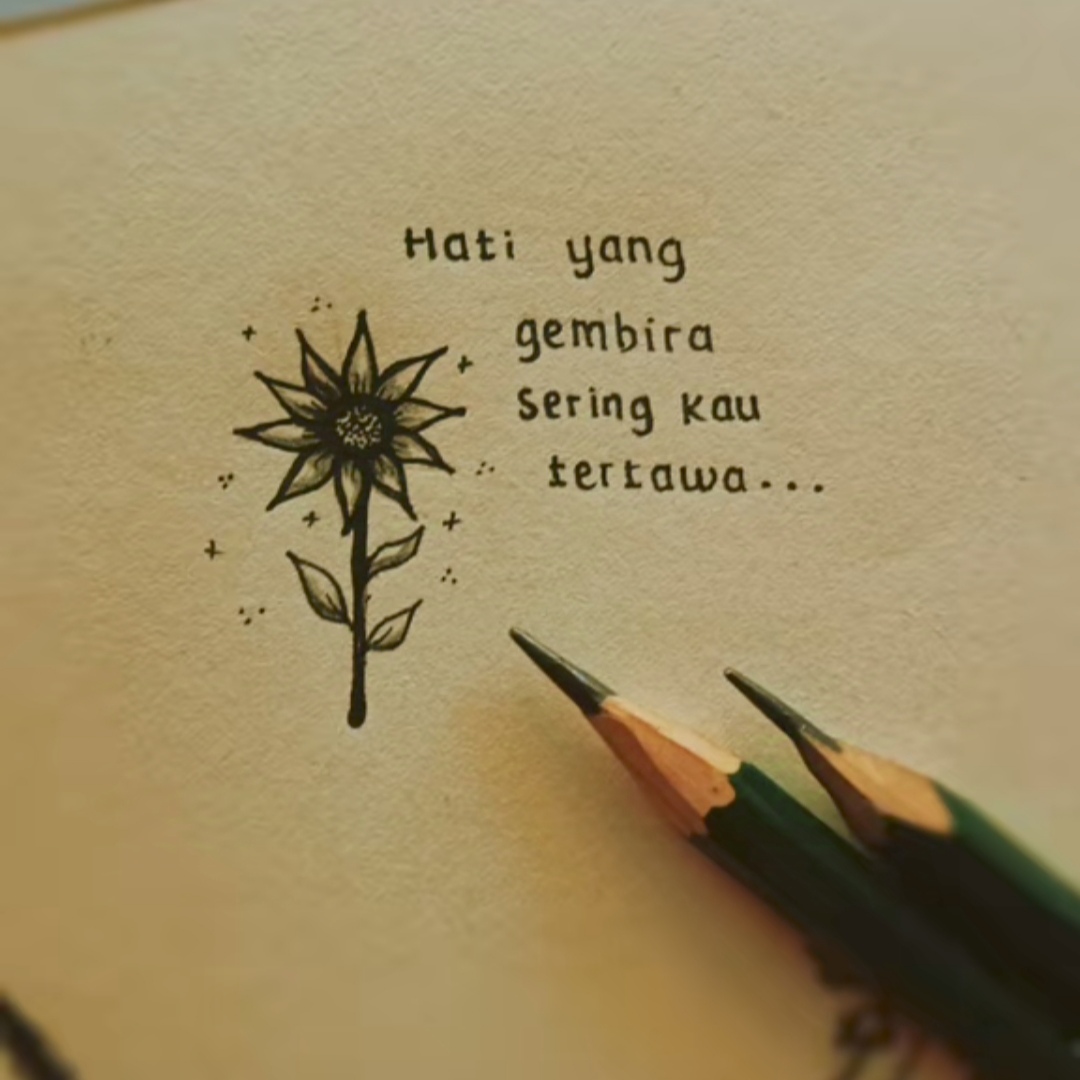 Hati yang
gembira
Sering kau
tertawa...